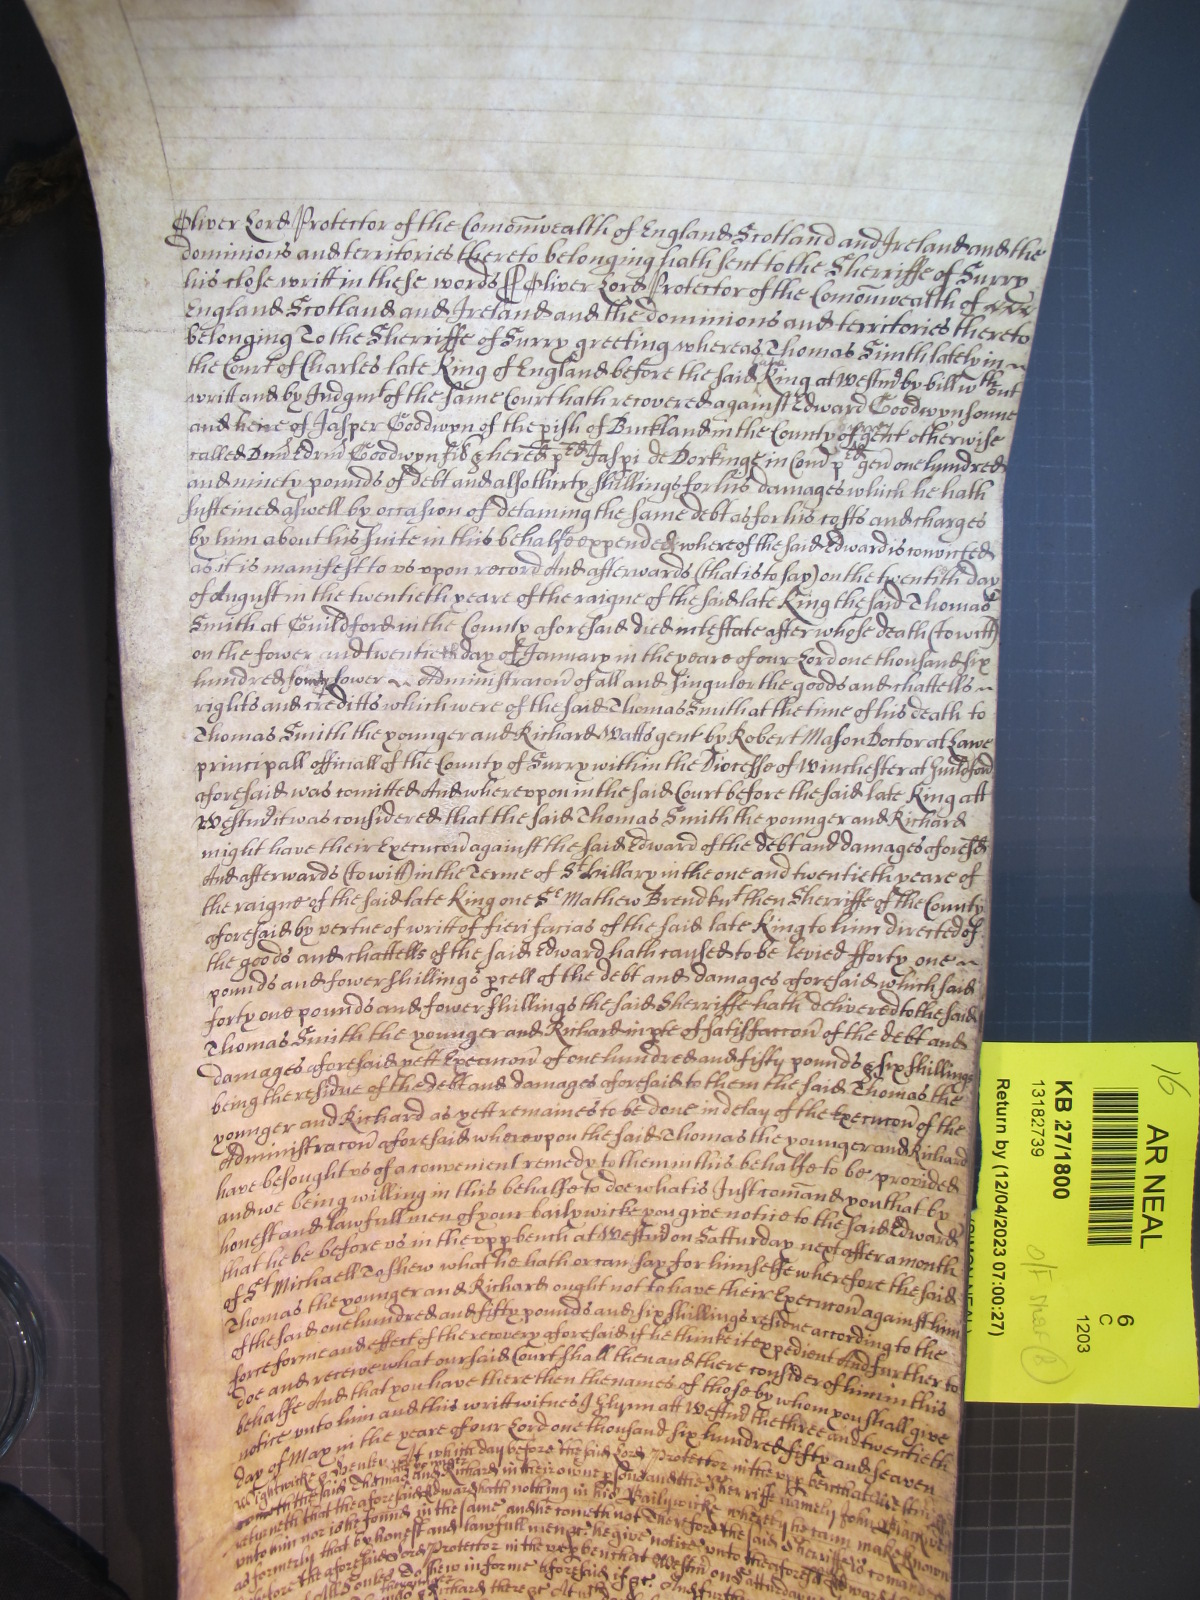 Oliver Lord Protector of the Comonwealth of England Scotland and Ireland and the
dominions and territories thereto belonging hath sent to the Sherriffe of Surry
his close writt in these words Oliver Lord Protector of the Comonwealth of
England Scotland and Ireland and the dominions and territories thereto
belonging To the Sherriffe of Surry greeting whereas Thomas Smith lately in
the Court of Charles late King of England before the said King at Westm by bill wthout
writt and by Judgmt of the same Court hath recovered against Edward Goodwyn sonne
and heire of Jasper Goodwyn of the pish of Buckland in the County of gent otherwise
called Goodwyn fil & hered pred Jaspi de Dorkinge in Com pred gen one hundred
and ninety pounds of debt and also thirty shillings for his damages which he hath
susteined aswell by occasion of detaining the same debt as for his costs and charges
by him about his suite in this behalfe expended whereof the said Edward is convicted
as it is manifest to us upon record And afterwards (that is to say) on the twentith day
of August in the twentieth yeare of the raigne of the said late King the said Thomas
Smith at Guildford in the County aforesaid died intestate after whose death (to witt)
on the fower and twentieth day of January in the yeare of our Lord one thousand six
hundred forty fower Administracon of all and singuler the goods and chattells
rights and creditts which were of the said Thomas Smith at the time of his death to
Thomas Smith the younger and Richard Watts gent by Robert Mason Doctor at Lawe
principall officiall of the County of Surry within the Diocesse of Winchester at Guildford
aforesaid was comitted And whereupon in the said Court before the said late King att
Westm it was considered that the said Thomas Smith the younger and Richard
might have their Execucon against the said Edward of the debt and damages aforesd
And afterwards (to witt) in the Terme of St Hillary in the one and twentieth yeare of
the raigne of the said late King one Sr Mathew Brend knt then Sherriffe of the County
aforesaid by vertue of writt of fieri facias of the said late King to him directed of
the goods and chattells of the said Edward hath caused to be levied fforty one
pounds and fower shillings pcell of the debt and damages aforesaid which said
forty one pounds and fower shillings the said Sherriffe hath delivered to the said
Thomas Smith the younger and Richard in pte of satisfaccon of the debt and
damages aforesaid yett Execucon of one hundred and fifty pounds & six shillings
being the residue of the debt and damages aforesaid to them the said Thomas the
younger and Richard as yett remaines to be done in delay of the Execucon of the
Administracon aforesaid whereupon the said Thomas the younger and Richard
have besought us of a convenient remedy to them in this behalfe to be provided
and we being willing in this behalfe to doe what is Just comand you that by
honest and lawfull men of your bailywicke you give notice to the said Edward
that he be before us in the upp bench at Westm on Satturday next after a month
of St Michaell To shew what he hath or can say for himselfe wherefore the said
Thomas the younger and Richard ought not to have their Execucon against him
of the said one hundred and fifty pounds and six shillings residue according to the
force forme and effect of the recovery aforesaid if he thinke it expedient And further to
doe and receive what our said Court shall then and there consider of him in this
behalfe And that you have there then the names of those by whom you shall give
notice unto him and this writt witnes J Glynn att Westm the three and twentieth
day of May in the yeare of our Lord one thousand six hundred fifty and seaven
Wightwicke & Henley At which day before the said Lord Protector in the upp bench att Westm
cometh the said Thomas and Richard in their owne psons and the Sherriffe namely John
returneth that the aforesaid Edward hath nothing in his Bailywicke whereby he cann make known
unto him nor is he found in the same and he cometh not Therefore the said Sherriffe is comanded
as formerly that by honest and lawfull men &c he give notice unto the aforesaid Edward
before the aforesaid Lord Protector in the upp bench at Westm on Satturday
of All Soules To shew in forme aforesaid if &c And further
Richard there &c At
16
AR NEAL
KB 27/1800
13182739
6
C
1203
Return by (12/04/2023 07:00:27)